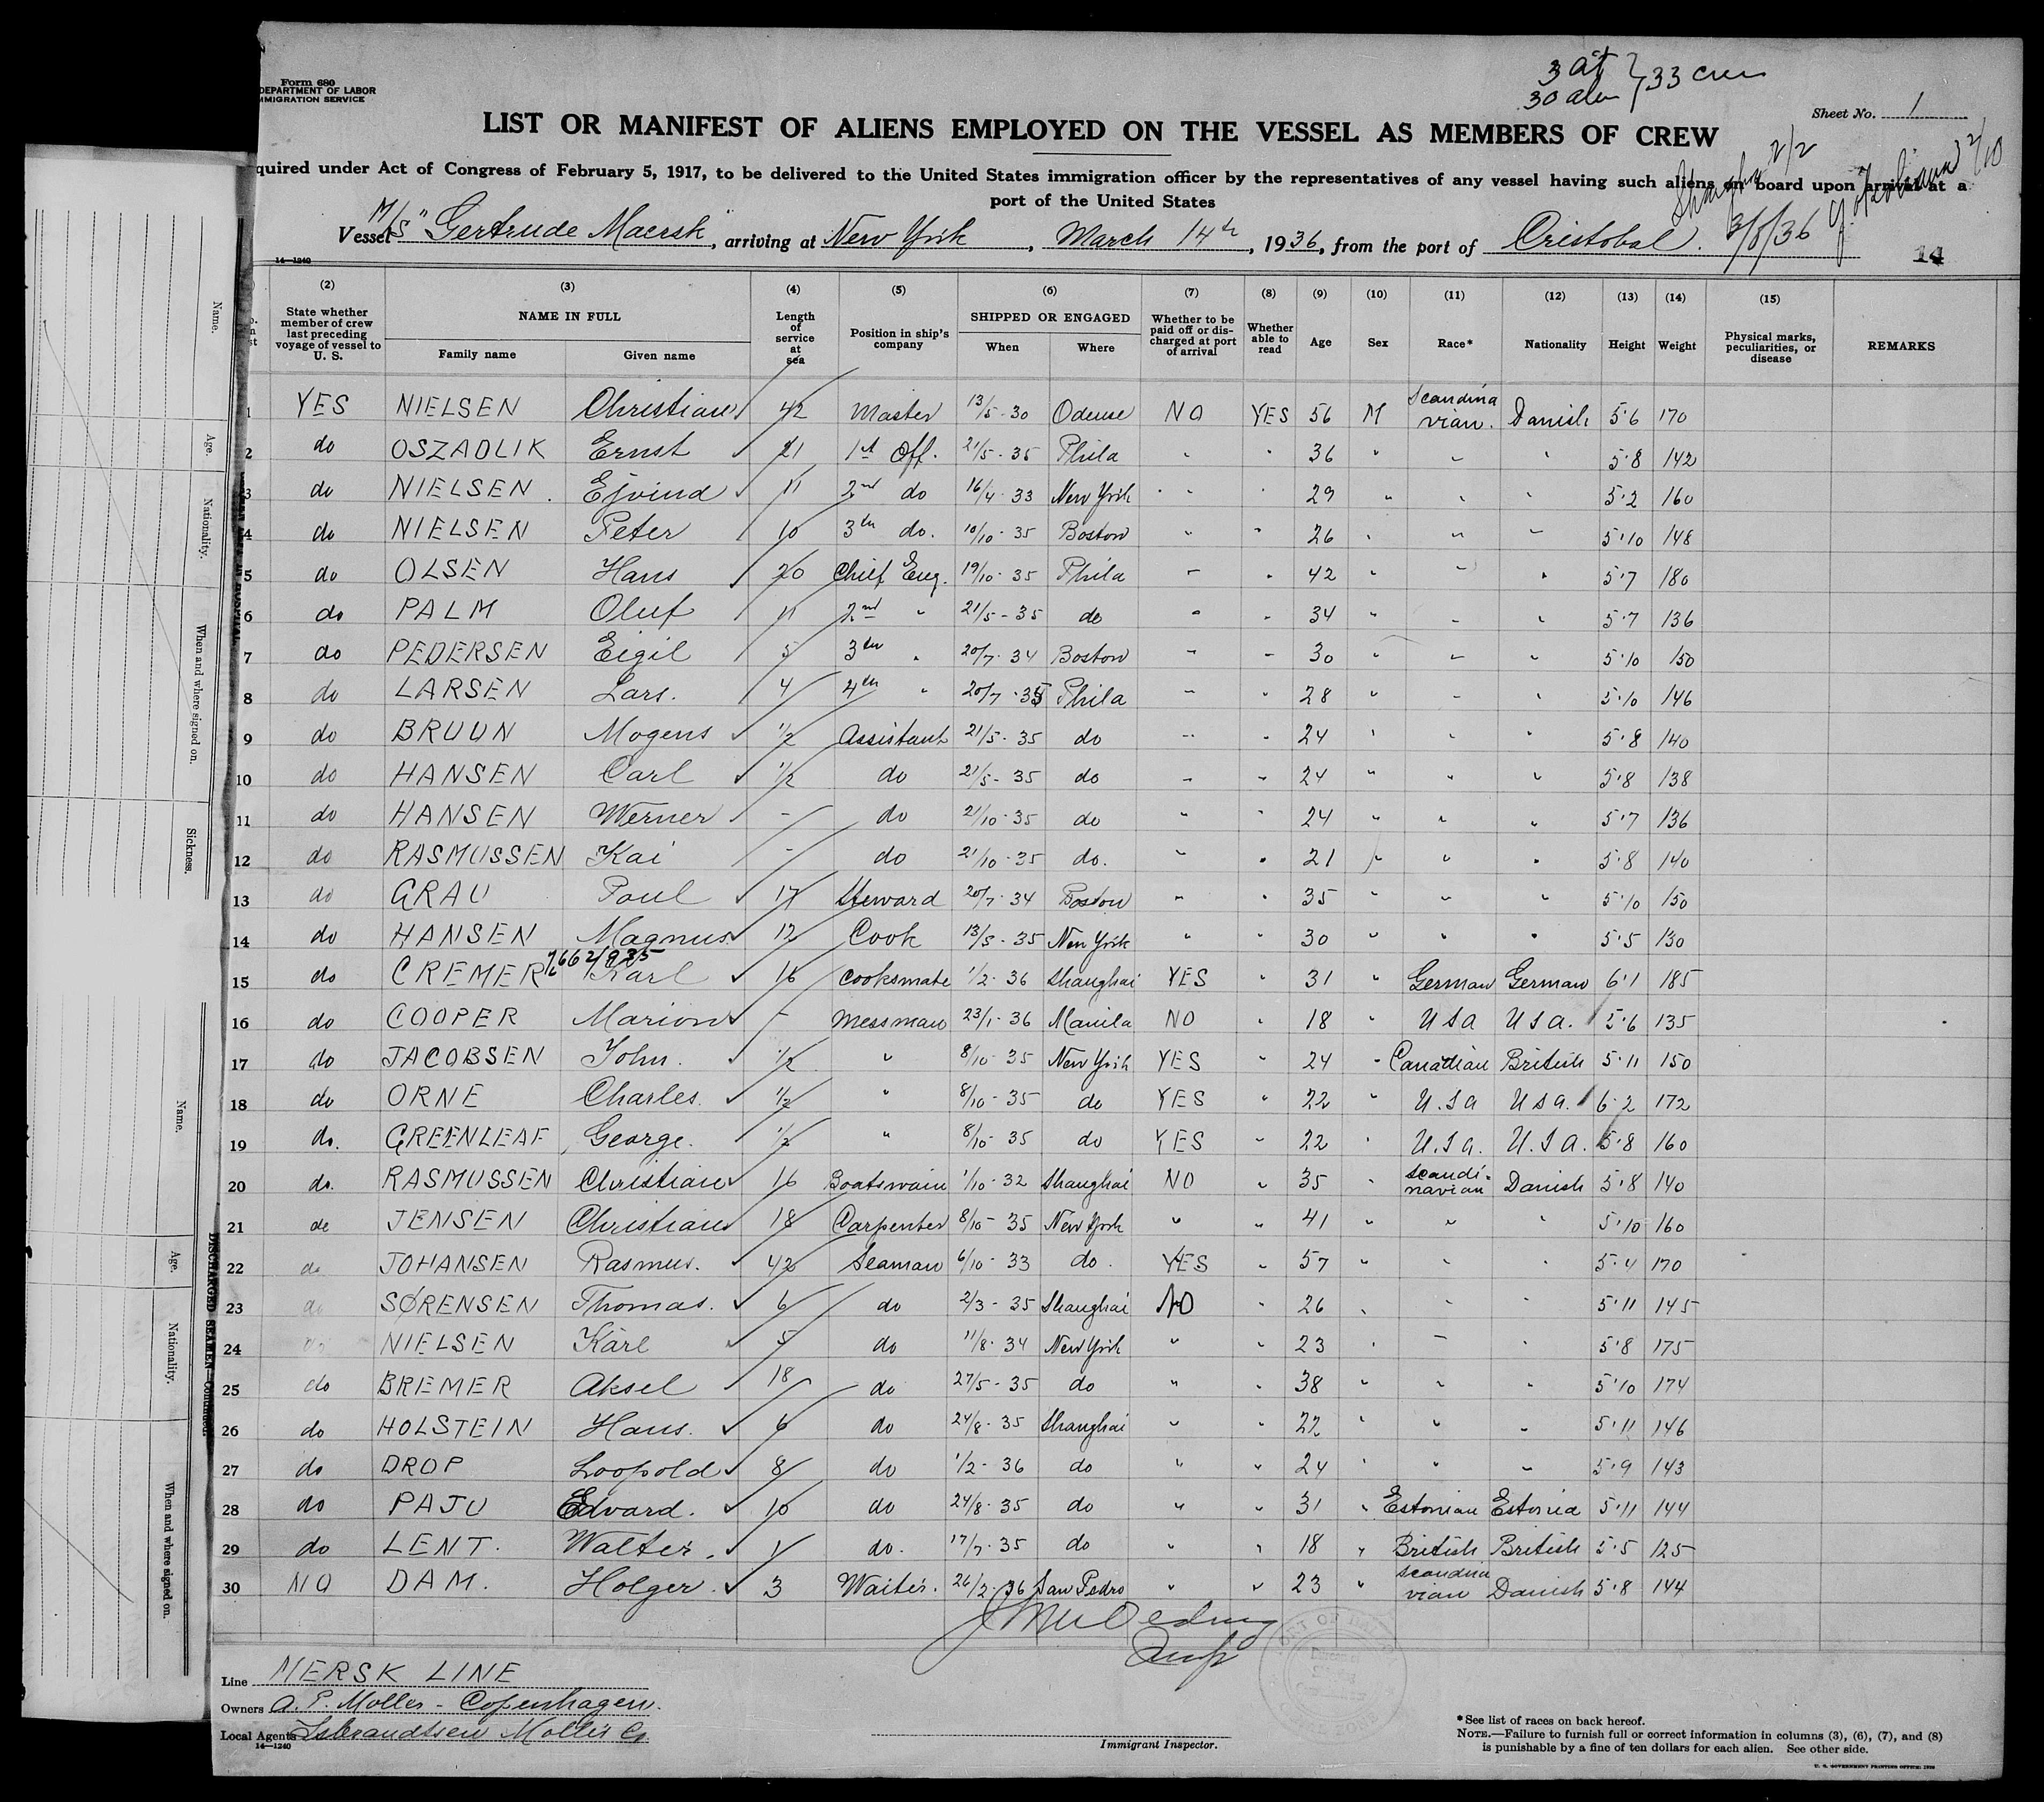 Form 680
DEPARTMENT OF LABOR
IMMIGRATION SERVICE
3 at
30 alien } 33 crew
Sheet No. 1
LIST OR MANIFEST OF ALIENS EMPLOYED ON THE VESSEL AS MEMBERS OF CREW
quired under Act of Congress of February 5, 1917, to be delivered to the United States immigration officer by the representatives of any vessel having such aliens on board upon arrival at a
port of the United States
Shanghai 2/2
2/10
Vessel M/S "Gertrude Maersk", arriving at New York, March 14th, 1936, from the port of Cristobal. 3/8/36
14
14—1240
(2) (3) (4) (5) (6) (7) (8) (9) (10) (11) (12) (13) (14) (15)
State whether member of crew last preceding voyage of vessel to U. S. NAME IN FULL Family name Given name Length of service at sea Position in ship's company SHIPPED OR ENGAGED When Where Whether to be paid off or discharged at port of arrival Whether able to read Age Sex Race* Nationality Height Weight Physical marks, peculiarities, or disease REMARKS
1 YES NIELSEN Christian 42 Master 13/5-30 Odense NO YES 56 M Scandinavian. Danish 5'6 170
2 do OSZADLIK Ernst 21 1st Off. 21/5-35 Phila " " 36 " " " 5'8 142
3 do NIELSEN. Ejvind 11 2nd do 16/4-33 New York " " 29 " " " 5'2 160
4 do NIELSEN Peter 10 3th do. 10/10-35 Boston " " 26 " " " 5'10 148
5 do OLSEN Hans 20 Chief Eng. 19/10-35 Phila " " 42 " " " 5'7 180
6 do PALM Oluf 11 2nd " 21/5-35 do " " 34 " " " 5'7 136
7 do PEDERSEN Eigil 5 3th " 20/7-34 Boston " " 30 " " " 5'10 150
8 do LARSEN Lars. 4 4th " 20/7-35 Phila " " 28 " " " 5'10 146
9 do BRUUN Mogens 1/2 Assistant 21/5-35 do " " 24 " " " 5'8 140
10 do HANSEN Carl 1/2 do 21/5-35 do " " 24 " " " 5'8 138
11 do HANSEN Werner - do 21/10-35 do " " 24 " " " 5'7 136
12 do RASMUSSEN Kai - do 21/10-35 do. " " 21 " " " 5'8 140
13 do GRAU Poul 17 Steward 20/7-34 Boston " " 35 " " " 5'10 150
14 do HANSEN Magnus. 12 Cook 13/5-35 New York " " 30 " " " 5'5 130
15 do CREMER Karl 16 Cooksmate 1/2-36 Shanghai YES " 31 " German German 6'1 185
16 do COOPER Marion - Messman 23/1-36 Manila NO " 18 " USA USA. 5'6 135
17 do JACOBSEN John. 1/2 " 8/10-35 New York YES " 24 " Canadian British 5'11 150
18 do ORNE Charles. 1/2 " 8/10-35 do YES " 22 " U.S.A USA. 6'2 172
19 do. GREENLEAF George. 1/2 " 8/10-35 do YES " 22 " U.S.A. U.S.A. 5'8 160
20 do. RASMUSSEN Christian 16 Boatswain 1/10-32 Shanghai NO " 35 " Scandinavian Danish 5'8 140
21 do JENSEN Christian 18 Carpenter 8/10-35 New York " " 41 " " " 5'10 160
22 do JOHANSEN Rasmus. 42 Seaman 6/10-33 do. YES " 57 " " " 5'4 170
23 do SØRENSEN Thomas. 6 do 2/3-35 Shanghai NO " 26 " " " 5'11 145
24 do NIELSEN Karl 5 do 11/8-34 New York " " 23 " " " 5'8 175
25 do BREMER Aksel 18 do 27/5-35 do " " 38 " " " 5'10 174
26 do HOLSTEIN Hans. 6 do 24/8-35 Shanghai " " 22 " " " 5'11 146
27 do DROP Loopold 8 do 1/2-36 do " " 24 " " " 5'9 143
28 do PAJU Edvard. 10 do 24/8-35 do " " 31 " Estonian Estonia 5'11 144
29 do LENT. Walter. 1 do. 17/7-35 do " " 18 " British British 5'5 125
30 NO DAM. Holger. 3 Waiter. 26/2-36 San Pedro " " 23 " Scandinavian Danish 5'8 144
Line MERSK LINE
Owners A. P. Moller - Copenhagen.
Local Agents Isbrandtsen Moller Co.
14—1240
Immigrant Inspector.
*See list of races on back hereof.
NOTE.—Failure to furnish full or correct information in columns (3), (6), (7), and (8)
is punishable by a fine of ten dollars for each alien. See other side.
U. S. GOVERNMENT PRINTING OFFICE
Name.
Age.
Nationality.
When and where signed on.
Sickness.
Name.
Age.
Nationality.
When and where signed on.
DISCHARGED SEAMEN—Continued